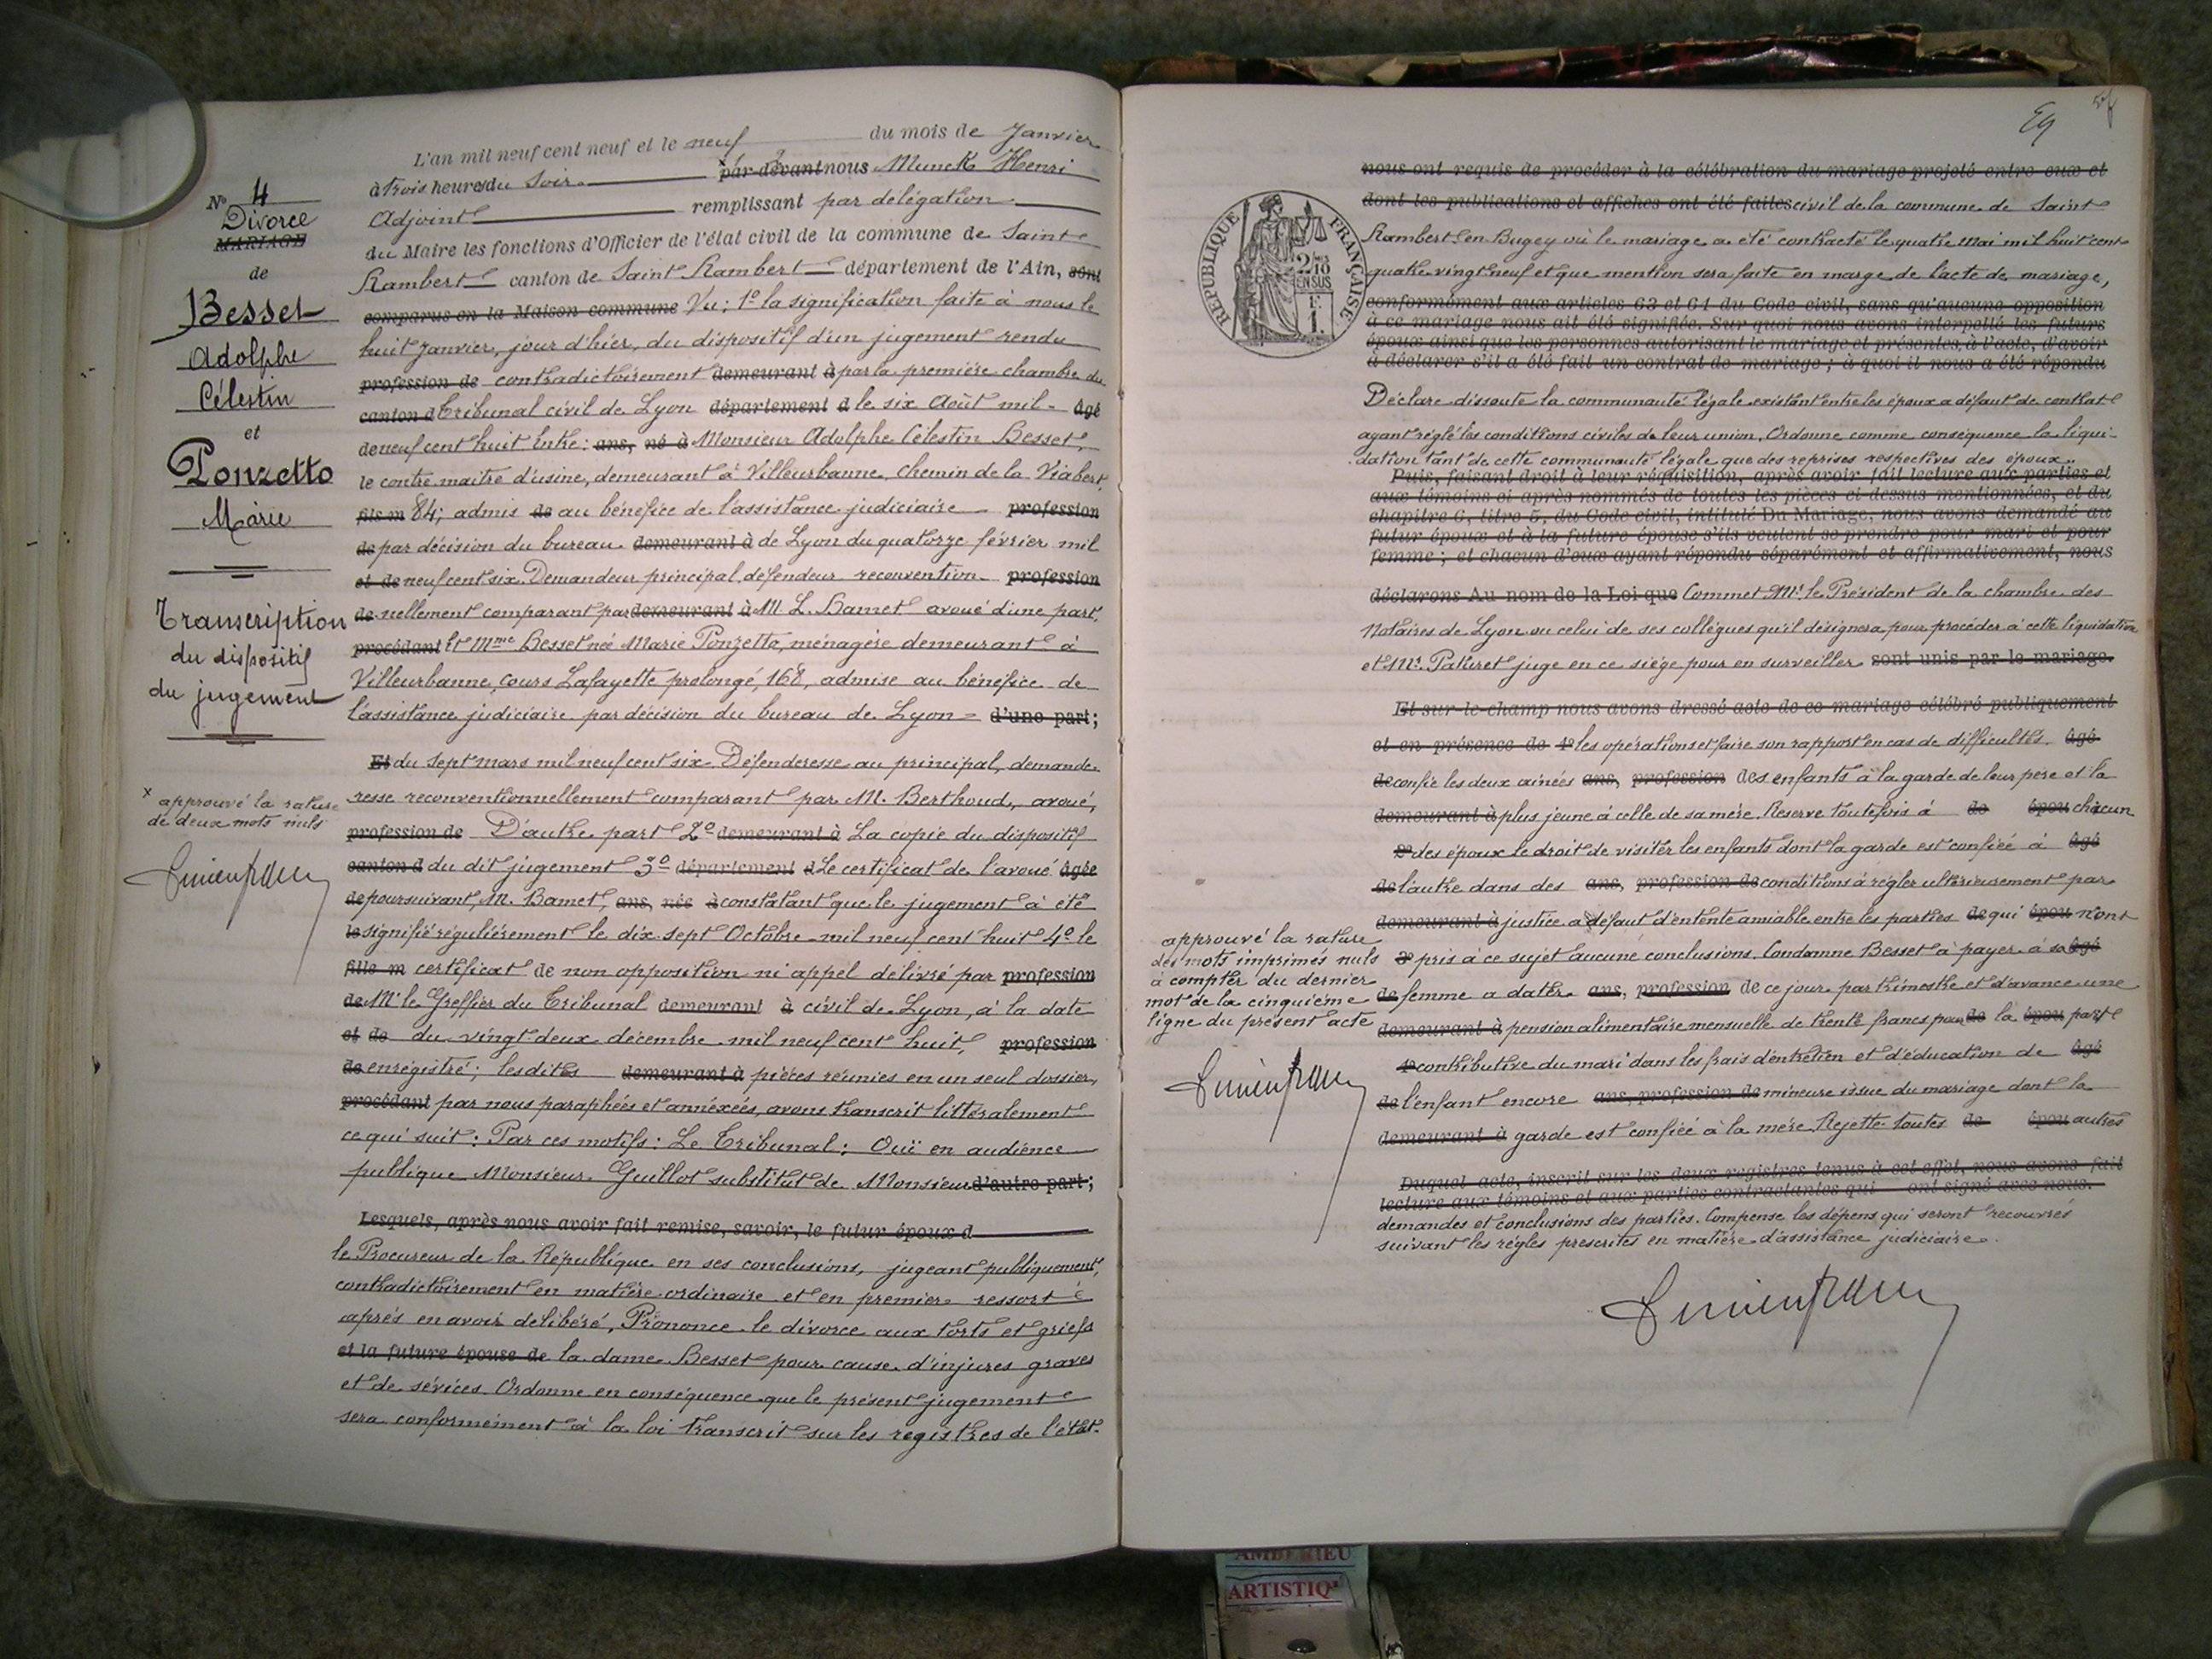 L'an mil neuf cent neuf et le neuf du mois de Janvier
à trois heures du Soir. par devant nous Munck Henri
Adjoint remplissant par délégation
du Maire les fonctions d'Officier de l'état civil de la commune de Saint
Rambert canton de Saint Rambert département de l'Ain, sont
comparus en la Maison commune Vu: 1º la signification faite à nous le
huit Janvier, jour d'hier, du dispositif d'un jugement rendu
profession de contradictoirement demeurant à par la première chambre du
canton d Tribunal civil de Lyon département d le six Août mil- âgé
de neuf cent huit Entre: ans, né à Monsieur Adolphe Célestin Besset,
le contre maître d'usine, demeurant à Villeurbanne, chemin de la Viabert,
fils m 84; admis de au bénéfice de l'assistance judiciaire profession
de par décision du bureau demeurant à de Lyon du quatorze février mil
et de neuf cent six. Demandeur principal, défendeur reconvention- profession
de nellement comparant par demeurant à M L. Bamet avoué d'une part,
procédant Et Mme Besset née Marie Ponzetto, ménagère demeurant à
Villeurbanne, cours Lafayette prolongé, 168, admise au bénéfice de
l'assistance judiciaire par décision du bureau de Lyon - d'une part;
Et du sept mars mil neuf cent six. Défenderesse au principal, demande-
resse reconventionnellement comparant par M. Berthoud, avoué,
profession de D'autre part 2º demeurant à La copie du dispositif
canton d du dit jugement 3º département d Le certificat de l'avoué âgée
de poursuivant, M. Bamet, ans, née à constatant que le jugement a été
le signifié régulièrement le dix sept Octobre mil neuf cent huit 4º le
fille m certificat de non opposition ni appel délivré par profession
de Mr le Greffier du Tribunal demeurant à civil de Lyon, à la date
et de du vingt deux décembre mil neuf cent huit, profession
de enregistré; lesdites demeurant à pièces réunies en un seul dossier,
procédant par nous paraphées et annéxées, avons transcrit littéralement
ce qui suit: Par ces motifs: Le Tribunal: Ouï en audience
publique Monsieur Guillot substitut de Monsieur d'autre part;
Lesquels, après nous avoir fait remise, savoir, le futur époux d
le Procureur de la République en ses conclusions, jugeant publiquement,
contradictoirement en matière ordinaire et en premier ressort
après en avoir délibéré, Prononce le divorce aux torts et griefs
et la future épouse de la dame Besset pour cause d'injures graves
et de sévices. Ordonne en conséquence que le présent jugement
sera conformément à la loi transcrit sur les registres de l'état-
Nº 4
Divorce
MARIAGE
de
Besset
Adolphe
Célestin
et
Ponzetto
Marie
Transcription
du dispositif
du jugement
x approuvé la rature
de deux mots nuls
59
nous ont requis de procéder à la célébration du mariage projeté entre eux et
dont les publications et affiches ont été faites civil de la commune de Saint
Rambert en Bugey où le mariage a été contracté le quatre Mai mil huit cent
quatre vingt neuf et que mention sera faite en marge de l'acte de mariage,
conformément aux articles 63 et 64 du Code civil, sans qu'aucune opposition
à ce mariage nous ait été signifiée. Sur quoi nous avons interpellé les futurs
époux ainsi que les personnes autorisant le mariage et présentes, à l'acte, d'avoir
à déclarer s'il a été fait un contrat de mariage; à quoi il nous a été répondu
Déclare dissoute la communauté légale existant entre les époux à défaut de contrat
ayant réglé les conditions civiles de leur union. Ordonne comme conséquence la liqui-
dation tant de cette communauté légale que des reprises respectives des époux.
Puis, faisant droit à leur réquisition, après avoir fait lecture aux parties et
aux témoins ci après nommés de toutes les pièces ci dessus mentionnées, et du
chapitre 6, titre 5, du Code civil, intitulé Du Mariage, nous avons demandé au
futur époux et à la future épouse s'ils veulent se prendre pour mari et pour
femme; et chacun d'eux ayant répondu séparément et affirmativement, nous
déclarons Au nom de la Loi que Commet Mr. le Président de la chambre des
Notaires de Lyon ou celui de ses collègues qu'il désignera pour procéder à cette liquidation
et Mr. juge en ce siège pour en surveiller sont unis par le mariage.
Et sur le champ nous avons dressé acte de ce mariage célébré publiquement
et en présence de 1º les opérations et faire son rapport en cas de difficultés. âgé
de confie les deux ainées ans, profession des enfants à la garde de leur père et la
demeurant à plus jeune à celle de sa mère. Réserve toutefois à de épou chacun
2º des époux le droit de visiter les enfants dont la garde est confiée à âgé
de l'autre dans des ans, profession de conditions à régler ultérieurement par
demeurant à justice a défaut d'entente amiable entre les parties de qui épou n'ont
3º pris à ce sujet aucune conclusions. Condamne Besset à payer à sa âgé
de femme a dater ans, profession de ce jour par trimestre et d'avance une
demeurant à pension alimentaire mensuelle de trente francs pour de la épou part
4º contributive du mari dans les frais d'entretien et d'éducation de âgé
de l'enfant encore ans, profession de mineure issue du mariage dont la
demeurant à garde est confiée à la mère. Rejette toutes de épou autres
Duquel acte, inscrit sur les deux registres tenus à cet effet, nous avons fait
lecture aux témoins et aux parties contractantes qui ont signé avec nous.
demandes et conclusions des parties. Compense les dépens qui seront recouvrés
suivant les règles prescrites en matière d'assistance judiciaire.
RÉPUBLIQUE FRANÇAISE
2/10
EN SUS
F.
1.
approuvé la rature
des mots imprimés nuls
à compter du dernier
mot de la cinquième
ligne du présent acte
AMBERIEU
ARTISTIQ